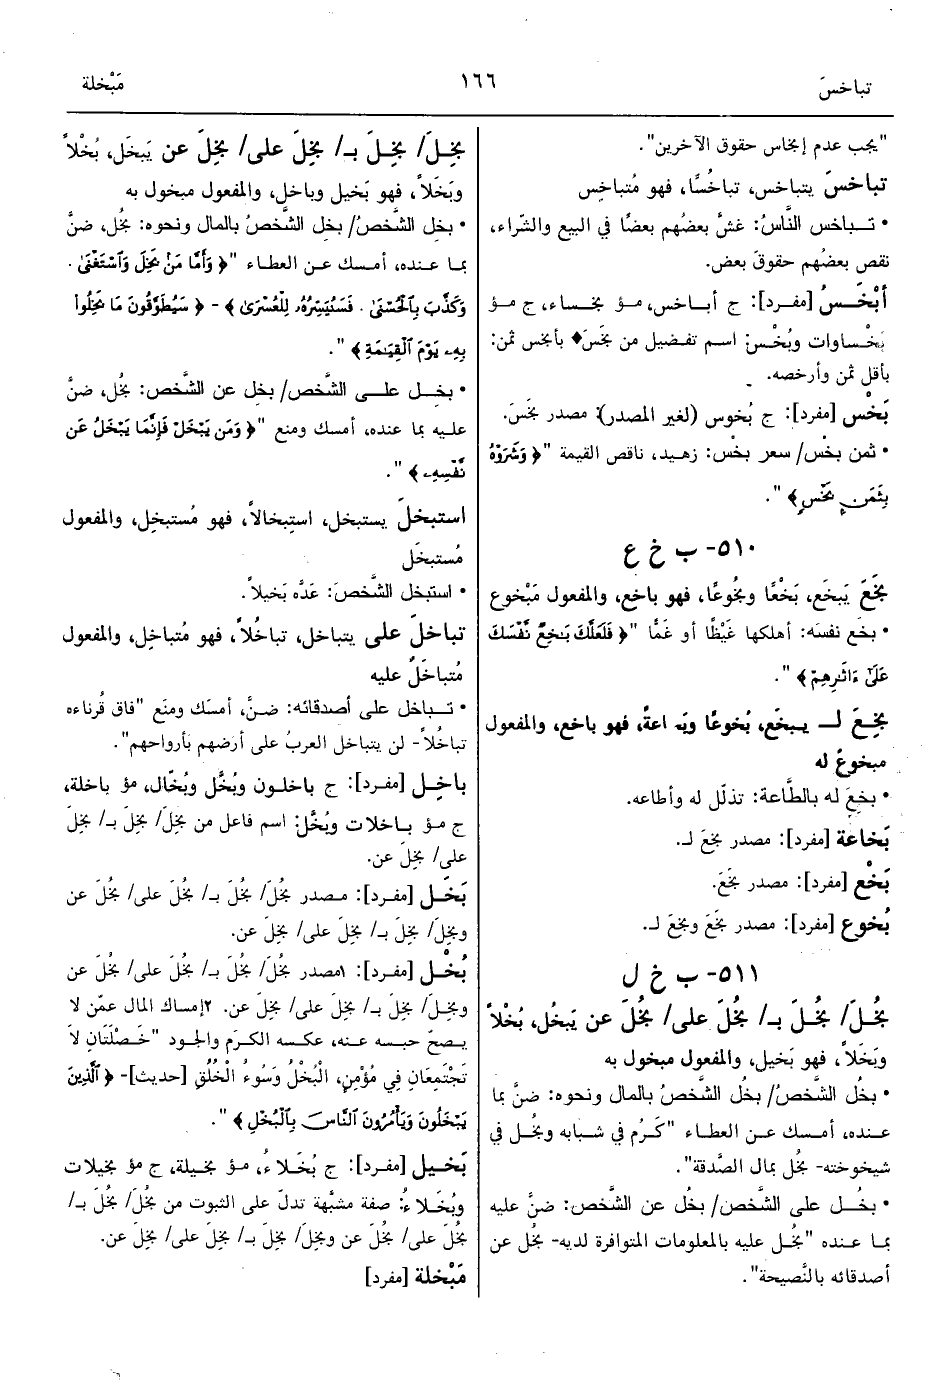 تباخسَ
١٦٦
مَبْخلة
"يجب عدم إبخاس حقوق الآخرين".
تباخسَ يتباخس، تباخُسًا، فهو مُتباخِس
• تباخس النَّاسُ: غشَّ بعضُهم بعضًا في البيع والشّراء،
نقص بعضُهم حقوقَ بعض.
أبْخَسُ [مفرد]: ج أباخس، مؤ بخساء، ج مؤ
بَخْساوات وبُخْس: اسم تفضيل من بخَسَ♦ بأبخس ثمن:
بأقل ثمن وأرخصه.
بَخْس [مفرد]: ج بُخوس (لغير المصدر): مصدر بخَسَ.
• ثمن بخْس/ سعر بخْس: زهيد، ناقص القيمة "﴿ وَشَرَوْهُ
بِثَمَنٍ بَخْسٍ﴾".
٥١٠- ب خ ع
بخَعَ يَبخَع، بَخْعًا وبُخُوعًا، فهو باخع، والمفعول مَبْخوع
• بخَع نفسَه: أهلكها غَيْظًا أو غمًّا "﴿ فَلَعَلَّكَ بَـٰخِعٌ نَّفْسَكَ
عَلَىٰٓ ءَاثَـٰرِهِمْ﴾".
بخِعَ لـ يبخَع، بُخوعًا وبَخاعةً، فهو باخع، والمفعول
مبخوعٌ له
• بخِعَ له بالطَّاعة: تذلّل له وأطاعه.
بَخاعة [مفرد]: مصدر بخِعَ لـ.
بَخْع [مفرد]: مصدر بخَعَ.
بُخوع [مفرد]: مصدر بخَعَ وبخِعَ لـ.
٥١١- ب خ ل
بخُلَ/ بخُلَ بـ/ بخُلَ على/ بخُلَ عن يَبخُل، بُخْلاً
وبَخَلاً، فهو بَخيل، والمفعول مبخول به
• بخُل الشَّخصُ/ بخُل الشَّخصُ بالمال ونحوه: ضنَّ بما
عنده، أمسك عن العطاء "كَرُم في شبابه وبخُل في
شيخوخته- بخُل بمال الصَّدقة".
• بخُل على الشَّخص/ بخُل عن الشَّخص: ضنَّ عليه
بما عنده "بخُل عليه بالمعلومات المتوافرة لديه- بخُل عن
أصدقائه بالنَّصيحة".
بخِلَ/ بخِلَ بـ/ بخِلَ على/ بخِلَ عن يَبخَل، بُخْلاً
وبَخَلاً، فهو بَخيل وباخل، والمفعول مبخول به
• بخِل الشَّخصُ/ بخِل الشَّخصُ بالمال ونحوه: بخُل، ضنَّ
بما عنده، أمسك عن العطاء "﴿ وَأَمَّا مَنۢ بَخِلَ وَٱسْتَغْنَىٰ .
وَكَذَّبَ بِٱلْحُسْنَىٰ . فَسَنُيَسِّرُهُۥ لِلْعُسْرَىٰ ﴾- ﴿ سَيُطَوَّقُونَ مَا بَخِلُوا۟
بِهِۦ يَوْمَ ٱلْقِيَـٰمَةِ ﴾".
• بخِل على الشَّخص/ بخِل عن الشَّخص: بخُل، ضنَّ
عليه بما عنده، أمسك ومنع "﴿ وَمَن يَبْخَلْ فَإِنَّمَا يَبْخَلُ عَن
نَّفْسِهِۦ ﴾".
استبخلَ يستبخل، استِبخالاً، فهو مُستبخِل، والمفعول
مُستبخَل
• استبخل الشَّخصَ: عَدَّه بَخيلاً.
تباخلَ على يتباخل، تباخُلاً، فهو مُتباخِل، والمفعول
مُتباخَل عليه
• تباخل على أصدقائه: ضنَّ، أمسَك ومنَع "فاق قُرناءه
تباخُلاً- لن يتباخل العربُ على أرضهم بأرواحهم".
باخِل [مفرد]: ج باخلون وبُخَّل وبُخَّال، مؤ باخلة،
ج مؤ باخلات وبُخَّل: اسم فاعل من بخِلَ/ بخِلَ بـ/ بخِلَ
على/ بخِلَ عن.
بَخَل [مفرد]: مصدر بخُلَ/ بخُلَ بـ/ بخُلَ على/ بخُلَ عن
وبخِلَ/ بخِلَ بـ/ بخِلَ على/ بخِلَ عن.
بُخْل [مفرد]: ١مصدر بخُلَ/ بخُلَ بـ/ بخُلَ على/ بخُلَ عن
وبخِلَ/ بخِلَ بـ/ بخِلَ على/ بخِلَ عن. ٢إمساك المال عمّن لا
يصحّ حبسه عنه، عكسه الكرَم والجود "خَصلَتَانِ لاَ
تَجْتَمِعَانِ فِي مُؤْمِنٍ، الْبُخْلُ وَسُوءُ الْخُلُقِ [حديث]- ﴿ ٱلَّذِينَ
يَبْخَلُونَ وَيَأْمُرُونَ ٱلنَّاسَ بِٱلْبُخْلِ ﴾".
بَخيل [مفرد]: ج بُخَلاءُ، مؤ بخيلة، ج مؤ بخيلات
وبُخَلاءُ: صفة مشبَّهة تدلّ على الثبوت من بخُلَ/ بخُلَ بـ/
بخُلَ على/ بخُلَ عن وبخِلَ/ بخِلَ بـ/ بخِلَ على/ بخِلَ عن.
مَبْخلة [مفرد]